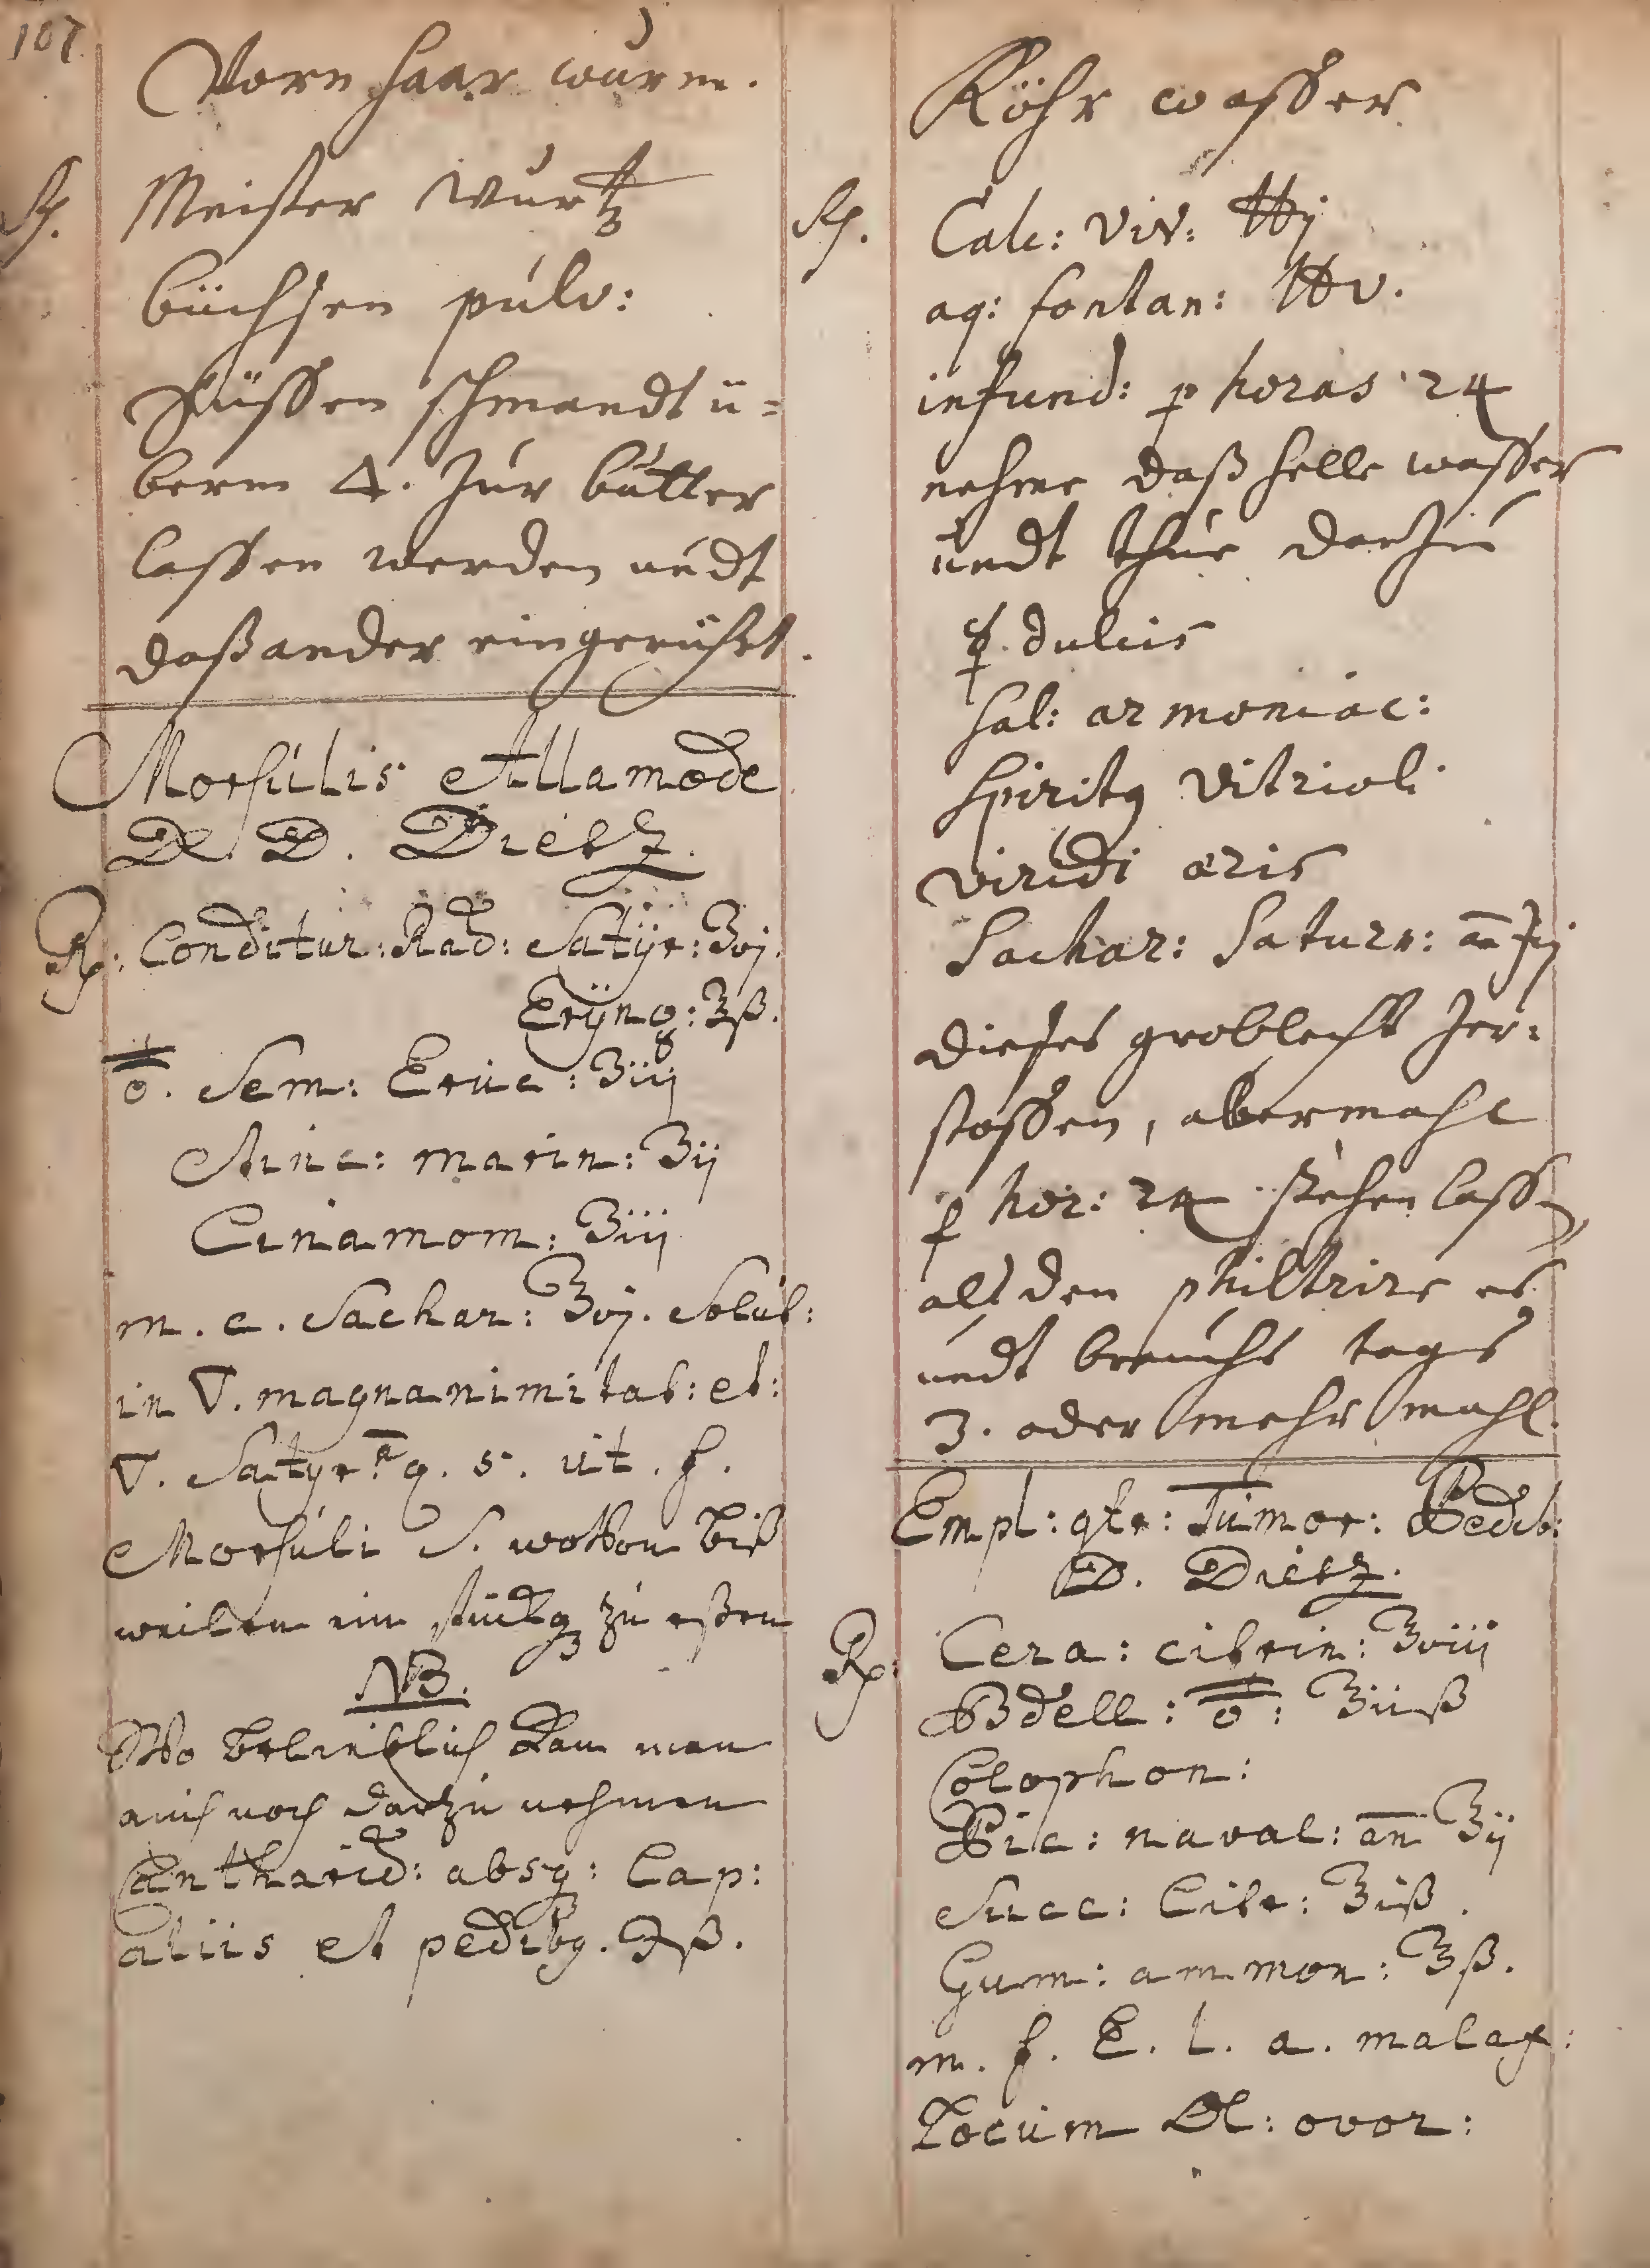 107
Vorn haar wurm.
Rp. Meister Wurtz
büchsen pulv:
Süssen schmandt ü-
berm 🜂. Zur butter
lassen werden undt
daß ander eingerührt.
Morsulis Allamode
D. Dietz.
Rp: Conditur: Rad: Satÿr: ℥vj.
Erÿng: ℥ß.
Sem: Eruc: ʒiij
marin: ʒij
Cinamom: ʒiij
m. c. Sachar: ℥vj. Solut:
in 🜄. magnanimitat: et:
🜄. Satyr: q. s. ut. f.
Morsuli S. wovon biß
weilen ein stückg zu eßen
NB.
Wo belieblich kan man
auch noch darzu nehmen
Cantharid: absq: Cap:
aliis et pedibq. ʒß.
Röhr wasser
Rp. Calc: viv: ℔j
aq: fontan: ℔v.
infund: p horas 24
nehme daß helle wasser
undt thue darzu
☿. dulcis
Sal: armoniac:
Spiritq Vitrioli
viridi æris
Sachar: Saturn: aa ʒij
dieses groblecht zer-
stossen, abermahl
p hor: 24 stehen lassen,
alß den philtrire es
undt brauchs tags
3. oder mehr mahl.
Empl: gtr: Tumor: Pedib:
D. Dietz.
Rp: Cera: citrin: ℥viij
Bdell: ℥iiß
Colophon:
Pic: naval: an ℥ij
Succ: Citr: ℥iß.
Gum: ammon: ℥ß.
m. f. E. l. a. malax:
Locum Ol: ovor: